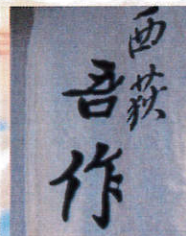 西荻
吾作